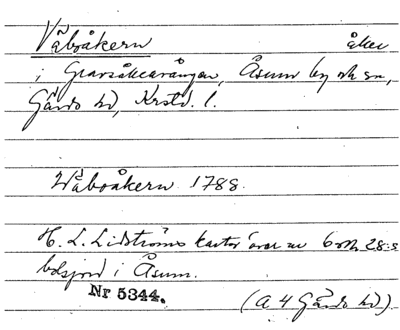 Våboåkern åker
i Gravsåkravången, Åsum by och sn,
Gärds hd, Krstd. l.
Wåboåkern 1788.
H. L. Lidströms kartor över nr 6 och 28:s
bolsjord i Åsum.
Nr 5344.
(A 4 Gärds hd)